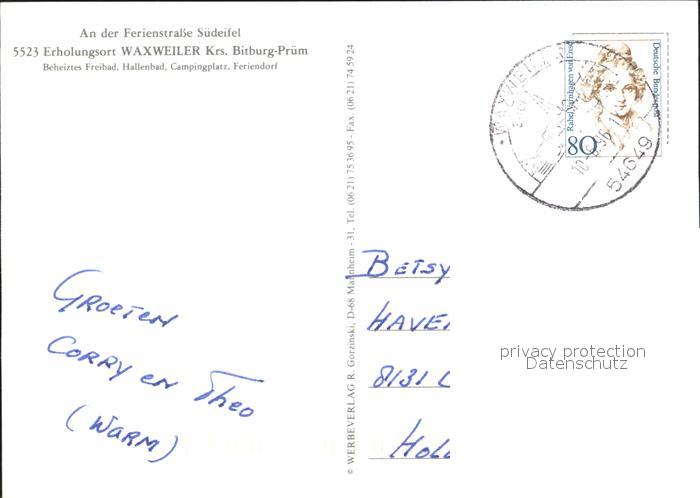 An der Ferienstraße Südeifel
5523 Erholungsort WAXWEILER Krs. Bitburg-Prüm
Beheiztes Freibad, Hallenbad, Campingplatz, Feriendorf
Rahel Varnhagen von Ense
Deutsche Bundespost
80
WAXWEILER
54649
© WERBEVERLAG R. Gorzinski, D-68 Mannheim - 31, Tel. (06 21) 75 36 95 - Fax. (06 21) 74 59 24
GROETEN
CORRY en Theo
(WARM)
BETSY
HAVE
8131
HOLL
privacy protection
Datenschutz